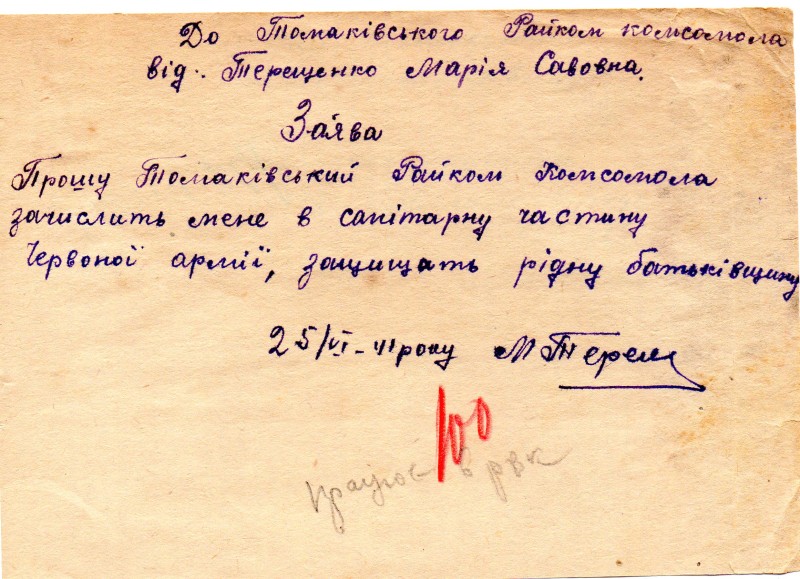 До Томаківського Райком комсомола
від. Терещенко Марія Савовна.
Заява
Прошу Томаківський Райком Комсомола
зачислить мене в санітарну частину
Червоної армії, защищать рідну батьківщину
25/VI-41 року М Терещ
100
працює в рвк